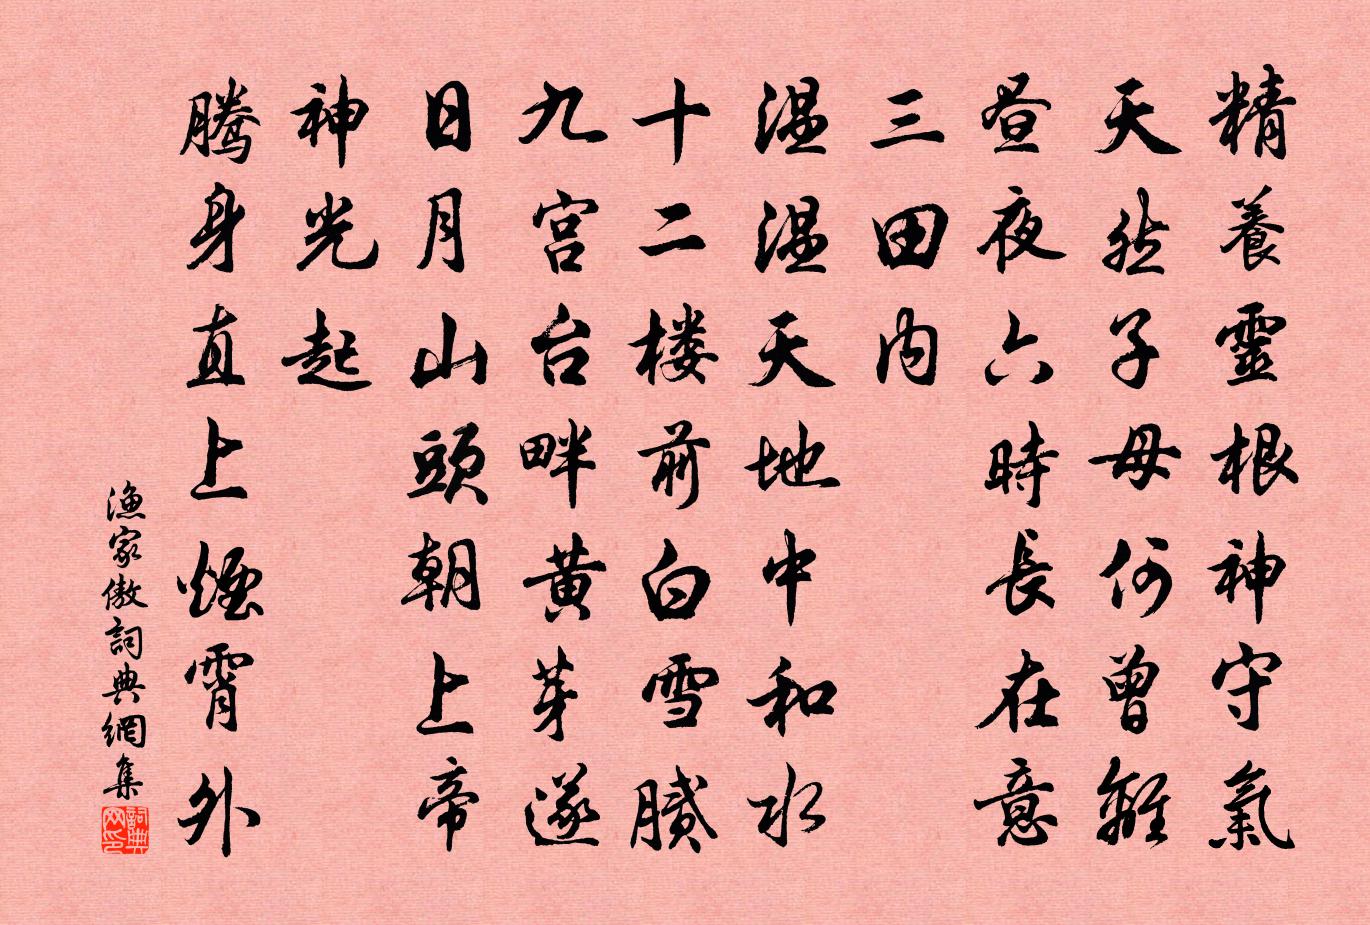 精養靈根神守氣
天然子母何曾離
昼夜六時長在意
三田内
温温天地中和水
十二楼前白雪膩
九宮台畔黄芽遂
日月山頭朝上帝
神光起
騰身直上煙霄外
漁家傲詞典網集
詞典网印